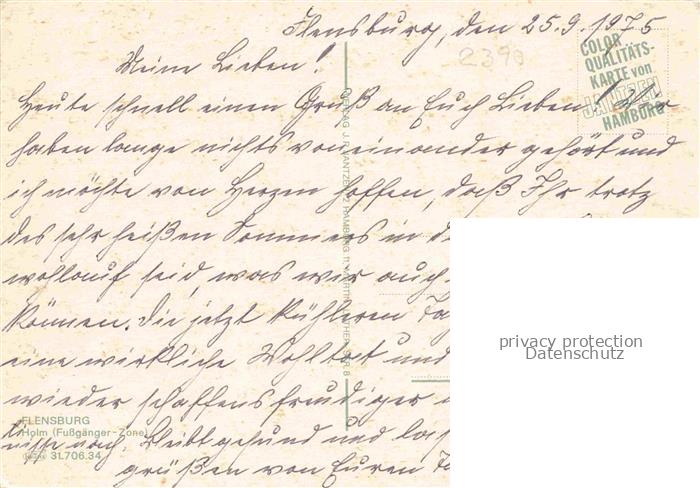 Flensburg, den 25.9.1975
2390
Meine Lieben!
Heute schnell einen Gruß an Euch Lieben! Wir
haben lange nichts voneinander gehört und
ich möchte von Herzen hoffen, daß Ihr trotz
des sehr heißen Sommers in
wohlauf seid, was wir auch
können. Die jetzt kühleren
eine wirkliche Wohltat und
wieder schaffensfreudiger
nach. Bleibt gesund und
grüßen von Euren
COLOR
QUALITÄTS-
KARTE von
JANTZEN
HAMBURG
VERLAG J. P. JANTZEN, 2 HAMBURG 11, MARTIN-LUTHER-STR. 8
privacy protection
Datenschutz
FLENSBURG
Holm (Fußgänger-Zone)
31.706.34